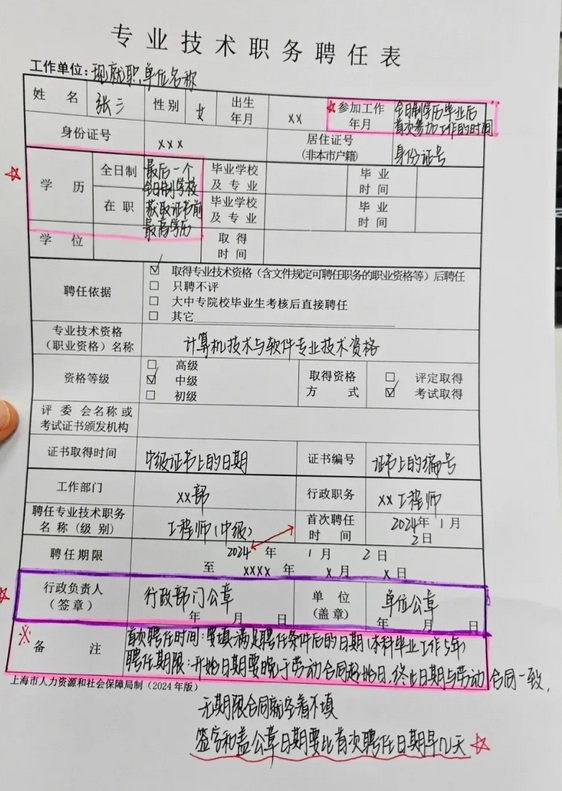 专业技术职务聘任表
工作单位：现就职单位名称
姓 名 张三 性别 女 出生年月 xx ☆参加工作年月 全日制学历毕业后首次参加工作的时间
身份证号 xxx 居住证号（非本市户籍） 身份证号
☆ 学 历 全日制 最后一个全日制学校获取证书前最高学历 毕业学校及专业 毕业时间
在职 毕业学校及专业 毕业时间
学 位 取得时间
聘任依据 ☑ 取得专业技术资格（含文件规定可聘任职务的职业资格等）后聘任
□ 只聘不评
□ 大中专院校毕业生考核后直接聘任
□ 其它
专业技术资格（职业资格）名称 计算机技术与软件专业技术资格
资格等级 □ 高级 ☑ 中级 □ 初级 取得资格方式 □ 评定取得 ☑ 考试取得
评委会名称或考试证书颁发机构
证书取得时间 中级证书上的日期 证书编号 证书上的编号
工作部门 xx部 行政职务 xx工程师
聘任专业技术职务名称（级别） 工程师（中级） 首次聘任时间 2024年1月2日
聘任期限 2024 年 1 月 2 日
至 xxxx 年 x 月 x 日
☆ 行政负责人（签章） 行政部门公章 年 月 日 单位（盖章） 单位公章 年 月 日
※ 备 注 首次聘任时间：要填满足聘任条件后的日期（本科毕业工作5年）
聘任期限：开始日期要晚于劳动合同起始日，终止日期与劳动合同一致，
上海市人力资源和社会保障局制（2024年版）
无期限合同就空着不填
签字和盖公章日期要比首次聘任日期早几天 ☆